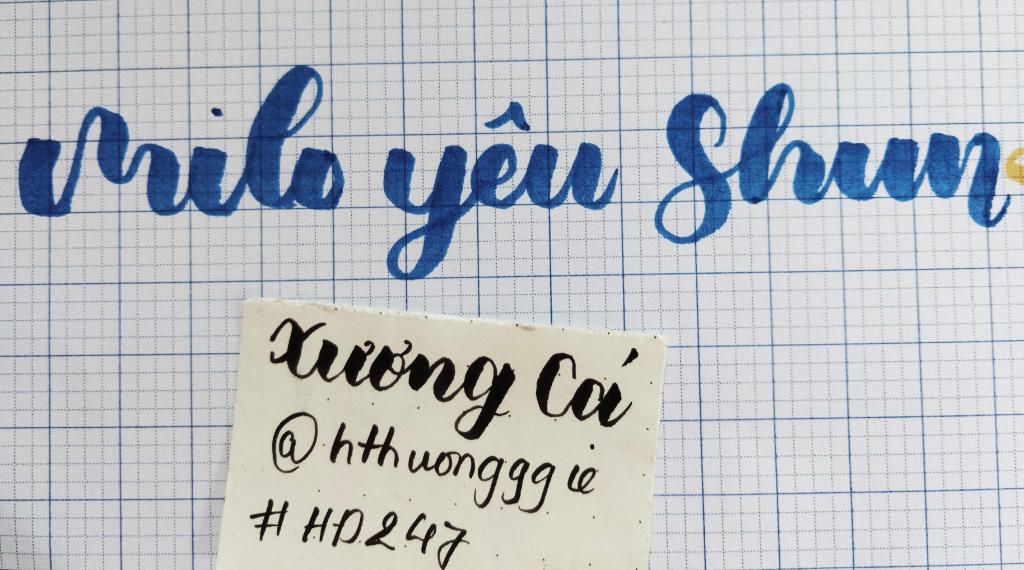 Milo yêu Shun
Xương Cá
@hthuongggie
#HD247